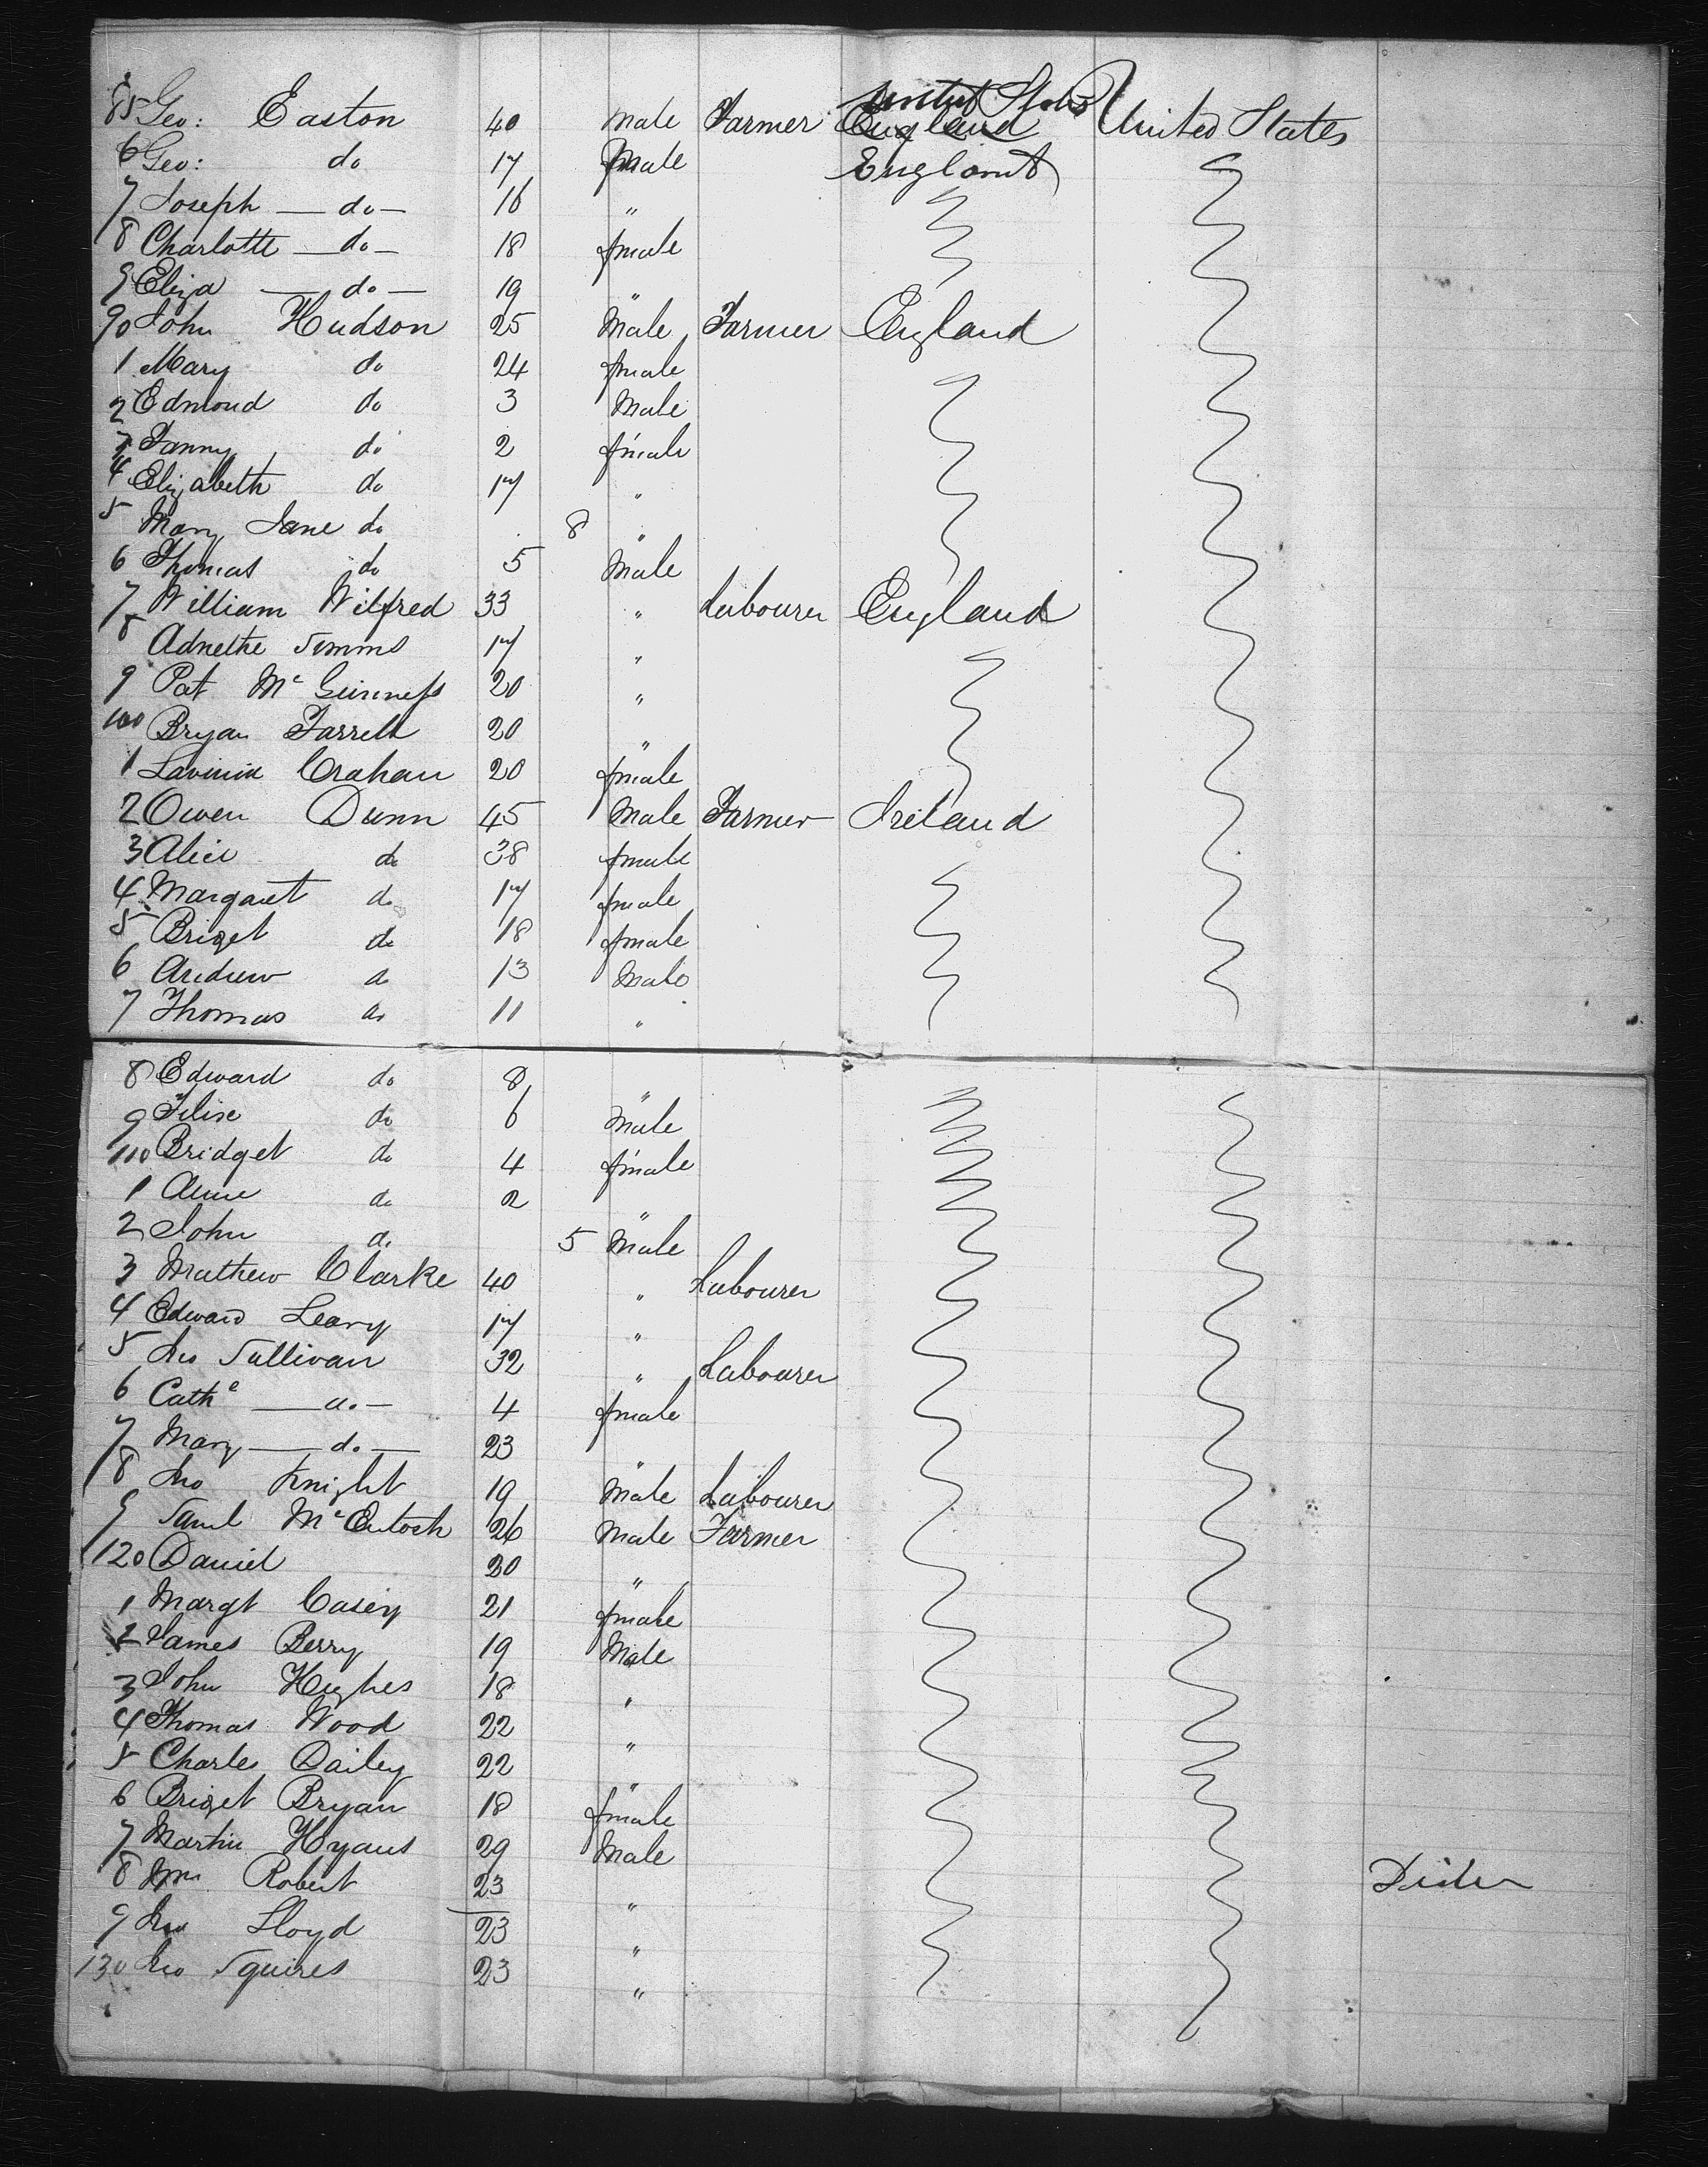 85 Geo: Easton 40 Male Farmer England United States United States
6 Geo: do 17 Male England
7 Joseph — do — 16 "
8 Charlotte — do — 18 female
9 Eliza — do — 19 "
90 John Hudson 25 Male Farmer England
1 Mary do 24 female
2 Edmond do 3 Male
3 Fanny do 2 female
4 Elizabeth do 17 "
5 Mary Jane do 8 "
6 Thomas do 5 Male
7 William Wilfred 33 " Labourer England
8 Adnethe Simms 17 "
9 Pat Mc Guinness 20 "
100 Bryan Farrell 20 "
1 Lavinia Crahan 20 female
2 Owen Dunn 45 Male Farmer Ireland
3 Alice do 38 female
4 Margaret do 17 female
5 Briget do 18 female
6 Andrew do 13 Male
7 Thomas do 11 "
8 Edward do 8 "
9 do 6 Male
110 Bridget do 4 female
1 Anne do 2 "
2 John do 5 Male
3 Mathew Clarke 40 " Labourer
4 Edward Leary 17 "
5 Jno Sullivan 32 " Labourer
6 Cathe — do — 4 female
7 Mary — do — 23 "
8 Jno Knight 19 Male Labourer
9 Saml McEntosh 26 Male Farmer
120 Daniel 20 "
1 Margt Casey 21 female
2 James Berry 19 Male
3 John Hughes 18 "
4 Thomas Wood 22 "
5 Charles Dailey 22 "
6 Briget Bryan 18 female
7 Martin Hyans 29 Male
8 Robert 23 "
9 Jno Lloyd 23 "
130 Jno Squires 23 "